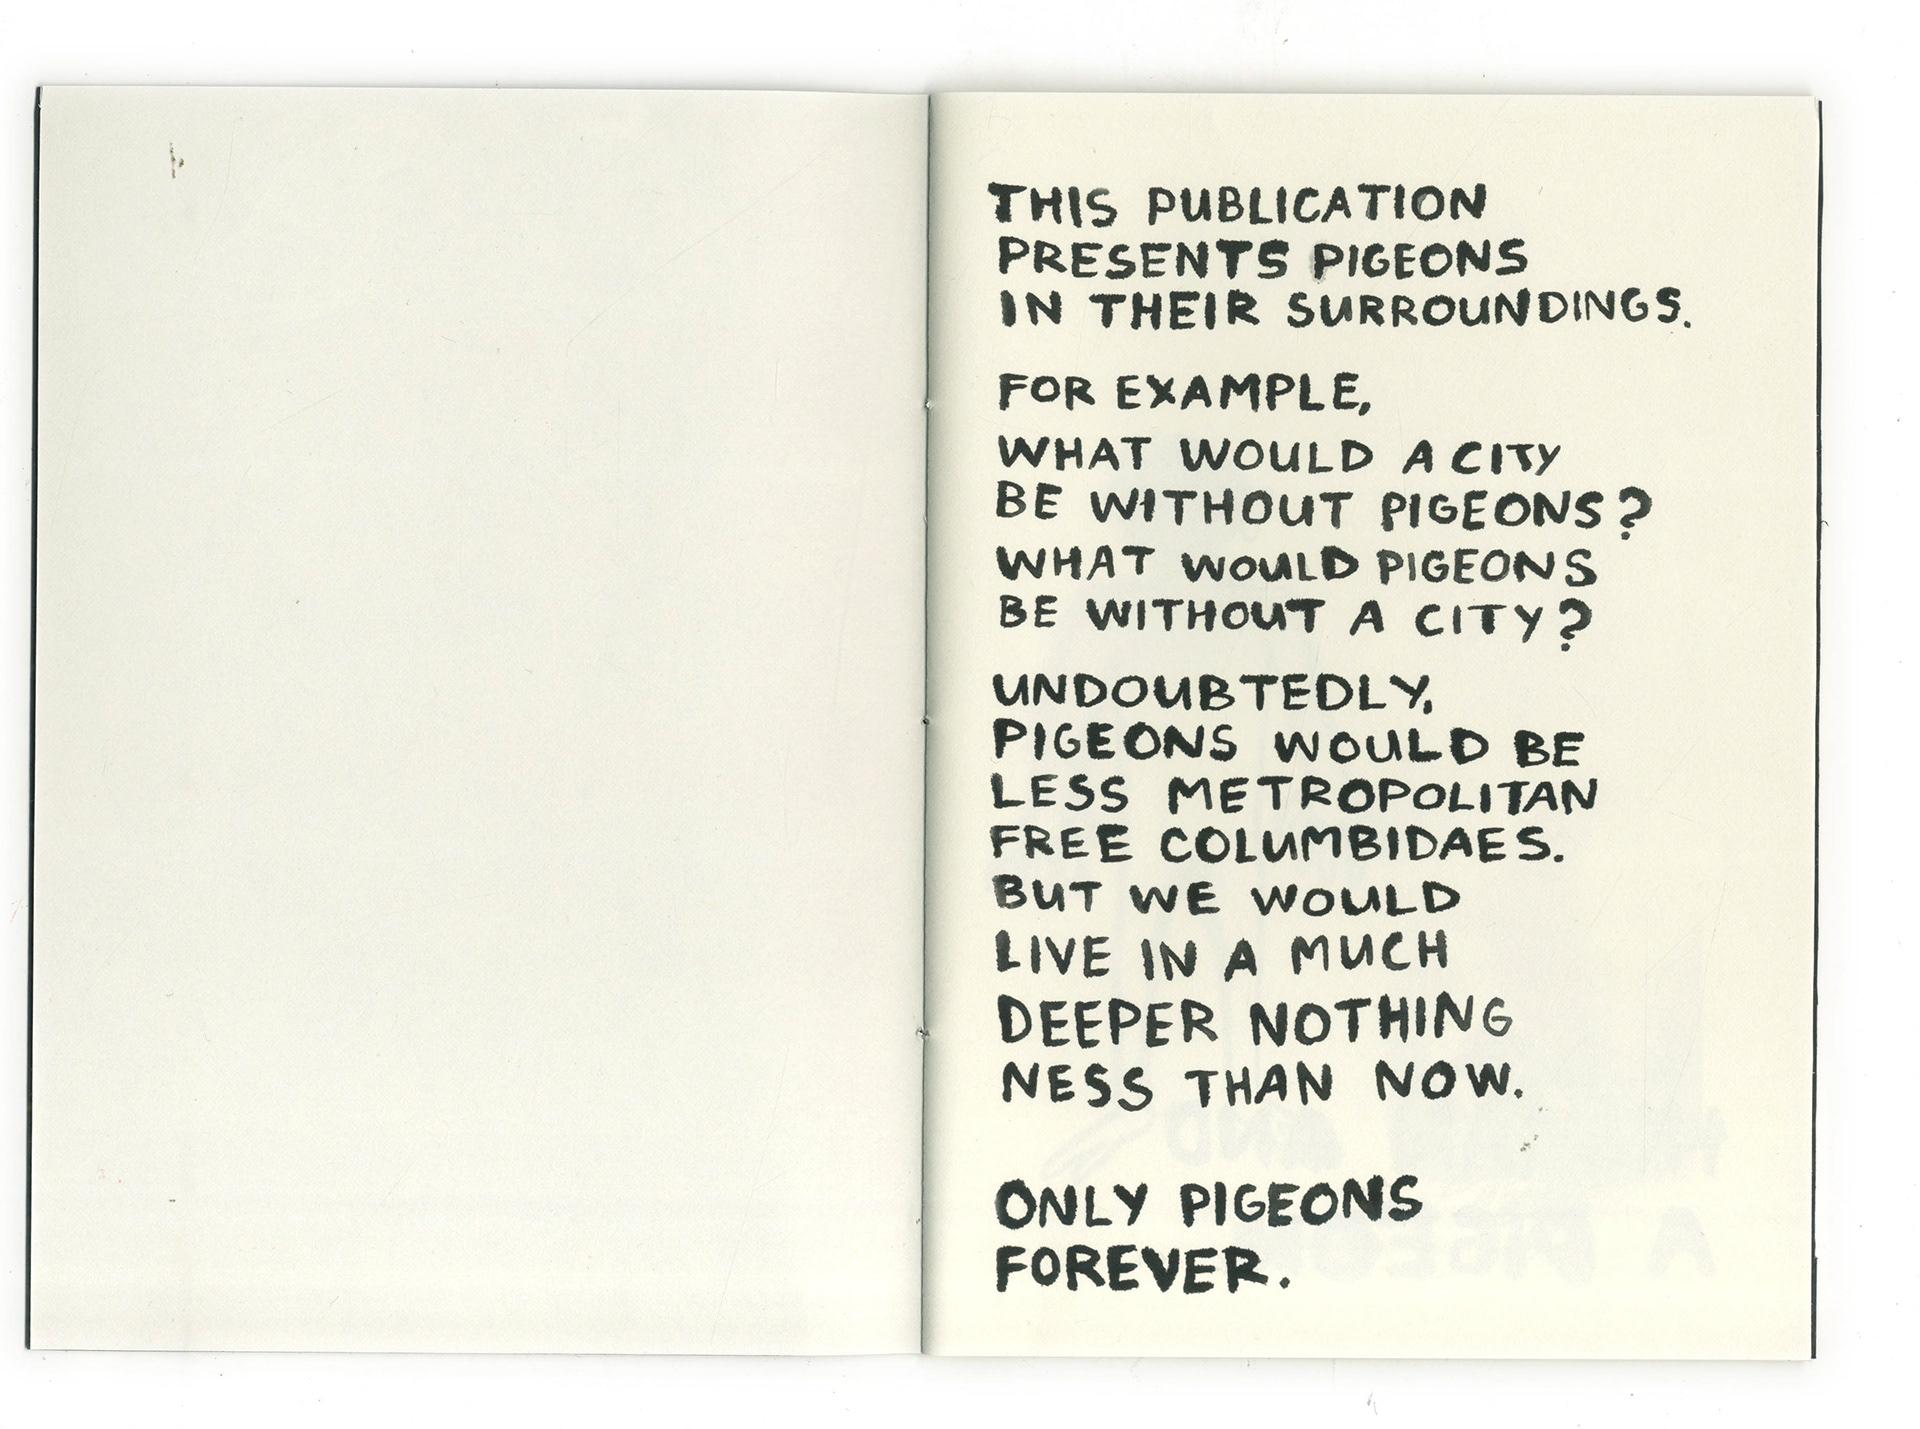 THIS PUBLICATION
PRESENTS PIGEONS
IN THEIR SURROUNDINGS.
FOR EXAMPLE,
WHAT WOULD A CITY
BE WITHOUT PIGEONS?
WHAT WOULD PIGEONS
BE WITHOUT A CITY?
UNDOUBTEDLY,
PIGEONS WOULD BE
LESS METROPOLITAN
FREE COLUMBIDAES.
BUT WE WOULD
LIVE IN A MUCH
DEEPER NOTHING
NESS THAN NOW.
ONLY PIGEONS
FOREVER.